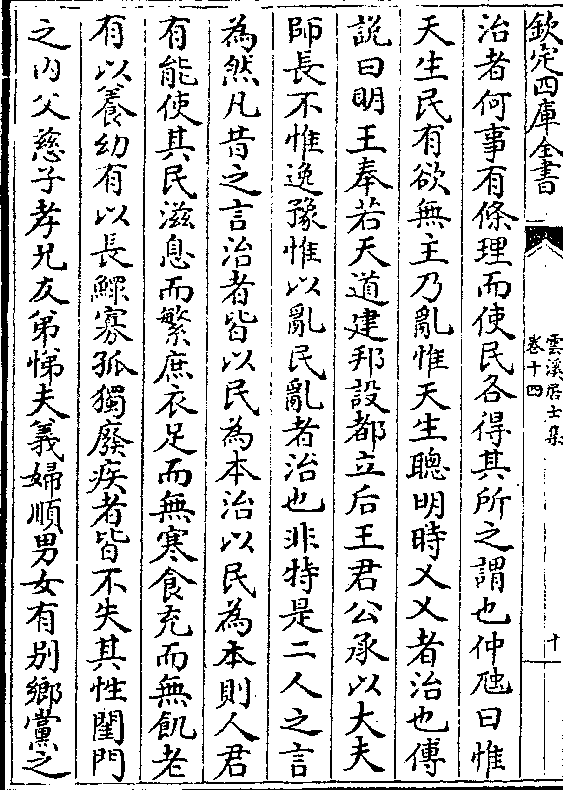 欽定四庫全書
雲溪居士集
卷十四
十
治者何事有條理而使民各得其所之謂也仲虺曰惟
天生民有欲無主乃亂惟天生聰明時乂乂者治也傅
説曰明王奉若天道建邦設都立后王君公承以大夫
師長不惟逸豫惟以亂民亂者治也非特是二人之言
為然凡昔之言治者皆以民為本治以民為本則人君
有能使其民滋息而繁庶衣足而無寒食充而無飢老
有以養幼有以長鰥寡孤獨廢疾者皆不失其性閨門
之内父慈子孝兄友弟悌夫義婦順男女有别鄉黨之